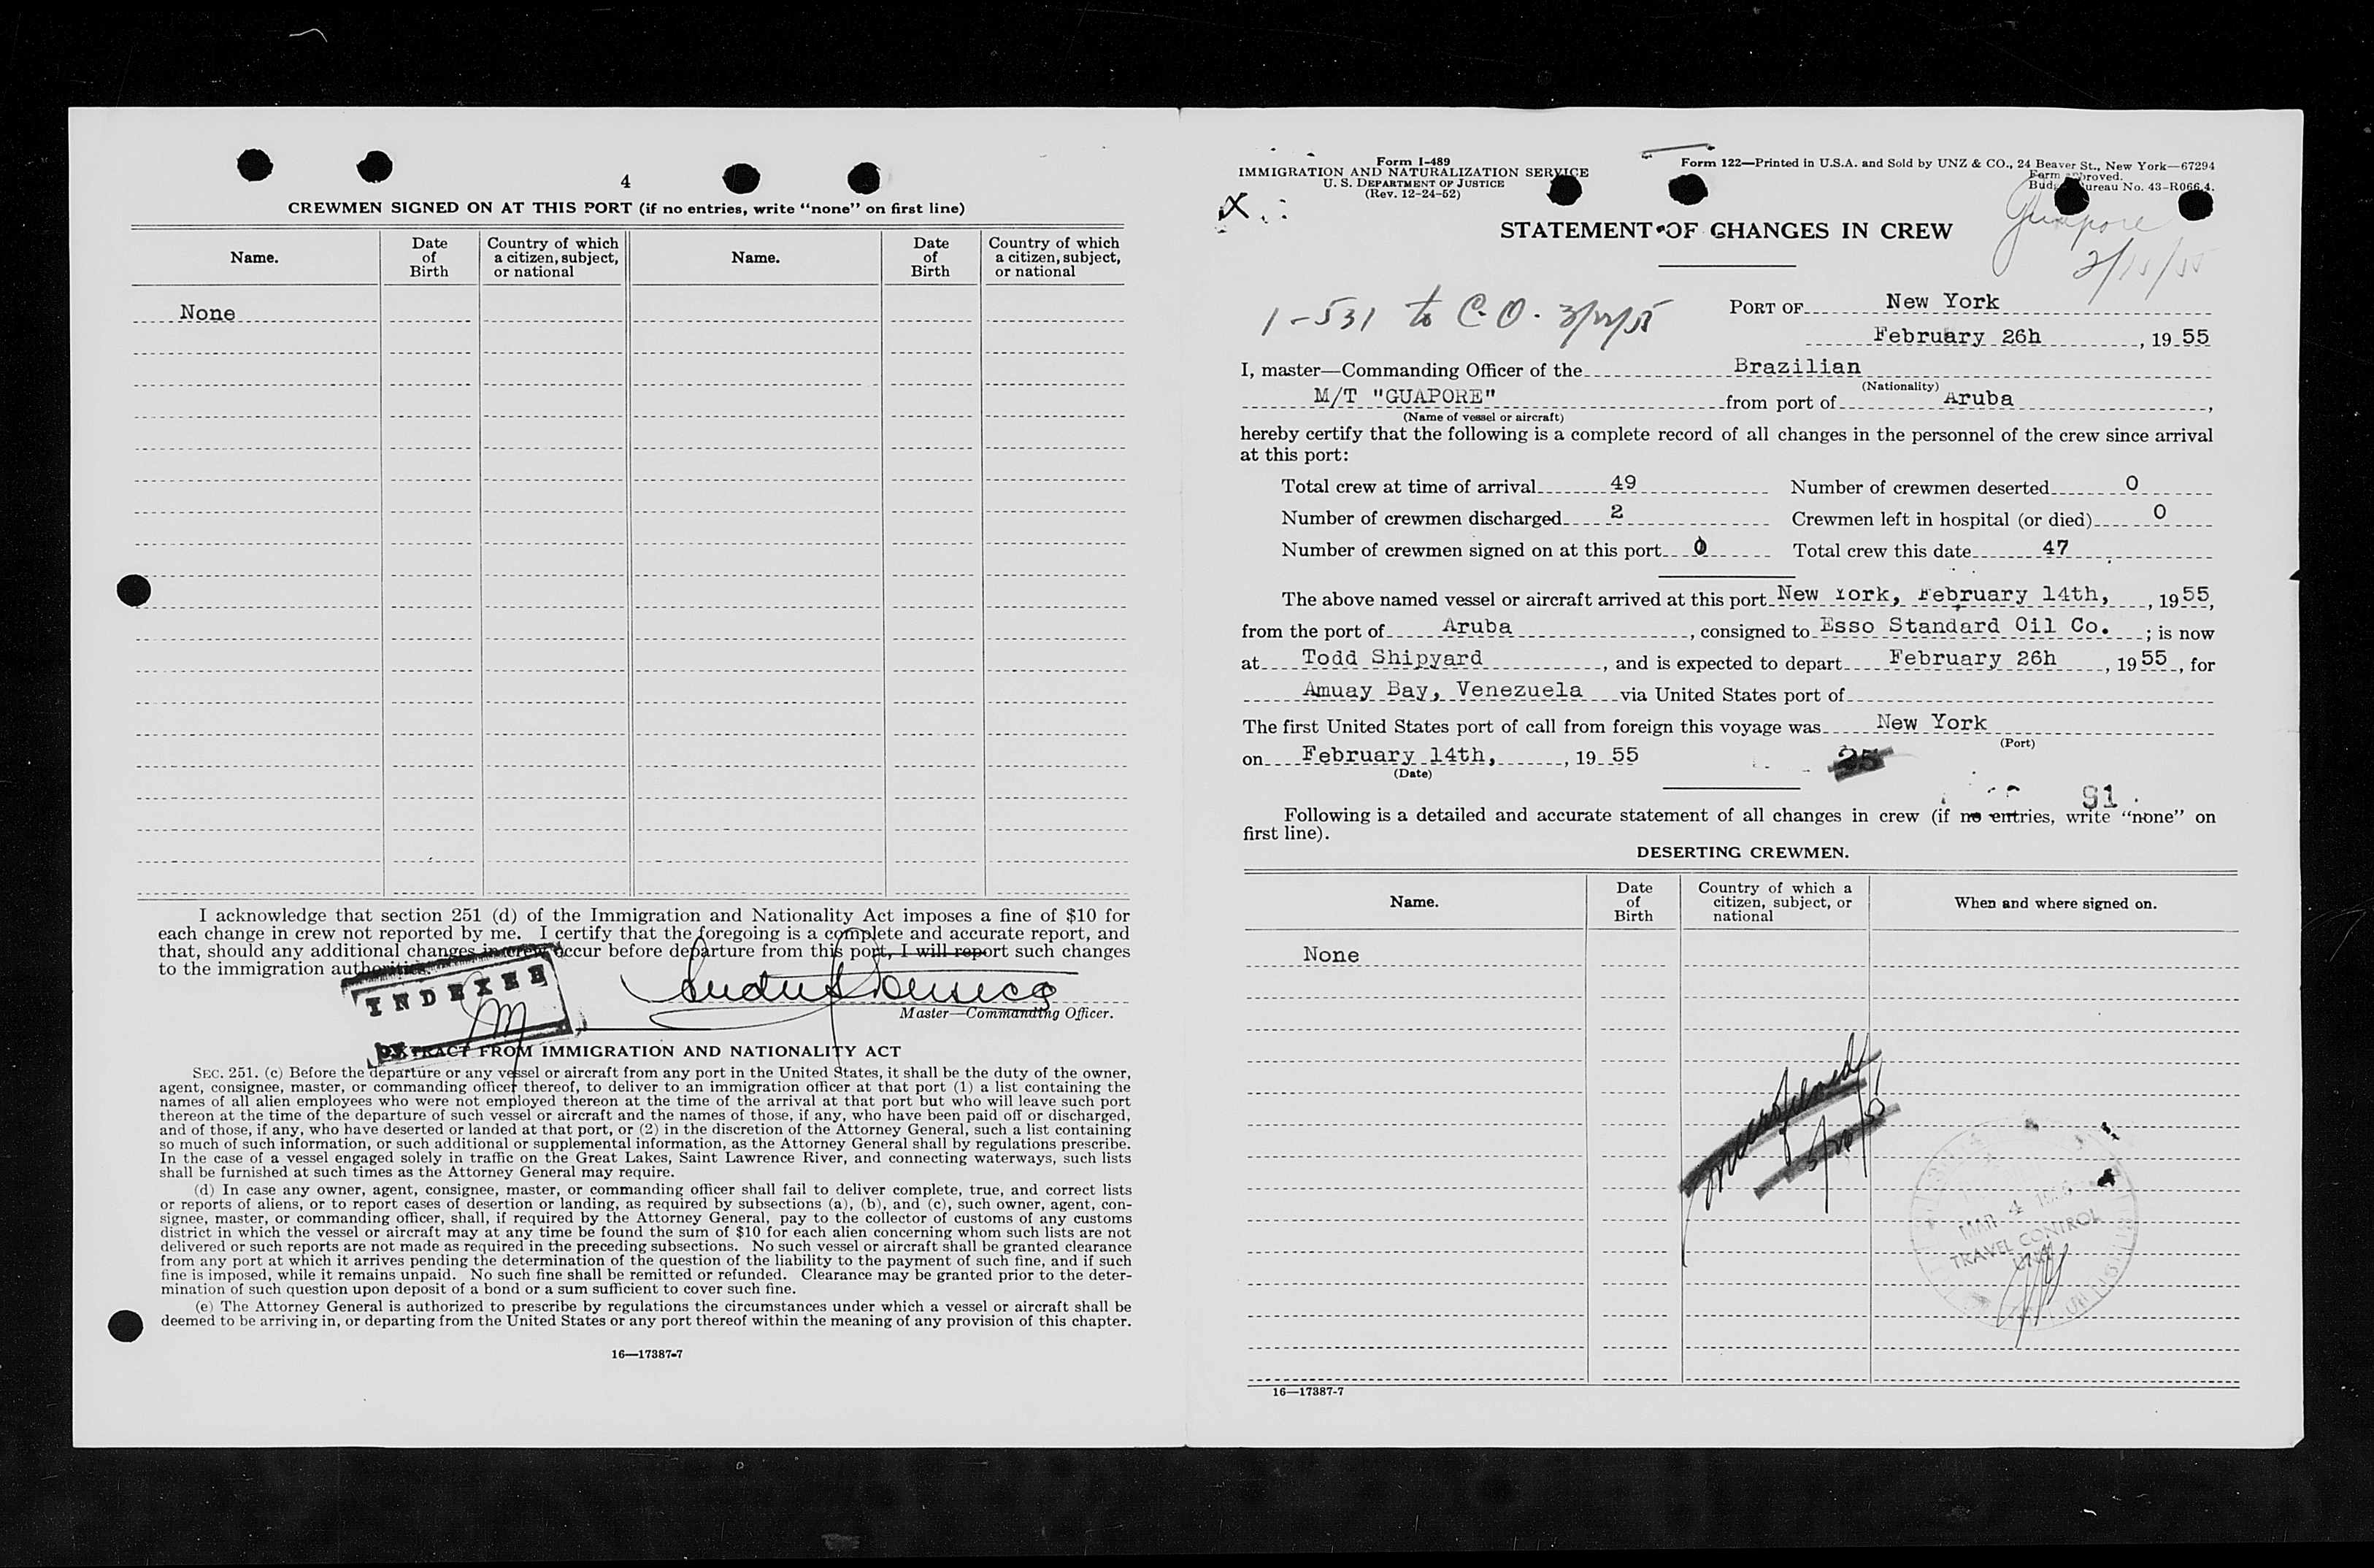 4
CREWMEN SIGNED ON AT THIS PORT (if no entries, write “none” on first line)
Name. Date of Birth Country of which a citizen, subject, or national Name. Date of Birth Country of which a citizen, subject, or national
None
I acknowledge that section 251 (d) of the Immigration and Nationality Act imposes a fine of $10 for
each change in crew not reported by me. I certify that the foregoing is a complete and accurate report, and
that, should any additional changes in crew occur before departure from this port, I will report such changes
to the immigration authorities.
INDEXED
Master—Commanding Officer.
EXTRACT FROM IMMIGRATION AND NATIONALITY ACT
SEC. 251. (c) Before the departure or any vessel or aircraft from any port in the United States, it shall be the duty of the owner,
agent, consignee, master, or commanding officer thereof, to deliver to an immigration officer at that port (1) a list containing the
names of all alien employees who were not employed thereon at the time of the arrival at that port but who will leave such port
thereon at the time of the departure of such vessel or aircraft and the names of those, if any, who have been paid off or discharged,
and of those, if any, who have deserted or landed at that port, or (2) in the discretion of the Attorney General, such a list containing
so much of such information, or such additional or supplemental information, as the Attorney General shall by regulations prescribe.
In the case of a vessel engaged solely in traffic on the Great Lakes, Saint Lawrence River, and connecting waterways, such lists
shall be furnished at such times as the Attorney General may require.
(d) In case any owner, agent, consignee, master, or commanding officer shall fail to deliver complete, true, and correct lists
or reports of aliens, or to report cases of desertion or landing, as required by subsections (a), (b), and (c), such owner, agent, con-
signee, master, or commanding officer, shall, if required by the Attorney General, pay to the collector of customs of any customs
district in which the vessel or aircraft may at any time be found the sum of $10 for each alien concerning whom such lists are not
delivered or such reports are not made as required in the preceding subsections. No such vessel or aircraft shall be granted clearance
from any port at which it arrives pending the determination of the question of the liability to the payment of such fine, and if such
fine is imposed, while it remains unpaid. No such fine shall be remitted or refunded. Clearance may be granted prior to the deter-
mination of such question upon deposit of a bond or a sum sufficient to cover such fine.
(e) The Attorney General is authorized to prescribe by regulations the circumstances under which a vessel or aircraft shall be
deemed to be arriving in, or departing from the United States or any port thereof within the meaning of any provision of this chapter.
16—17387-7
Form I-489
IMMIGRATION AND NATURALIZATION SERVICE
U. S. DEPARTMENT OF JUSTICE
(Rev. 12-24-52)
Form 122—Printed in U.S.A. and Sold by UNZ & CO., 24 Beaver St., New York—67294
Form approved.
Budget Bureau No. 43-R066.4.
X
Guapore
2/15/55
STATEMENT OF CHANGES IN CREW
1-531 to C.O. 3/22/55
PORT OF New York
February 26h, 19 55
I, master—Commanding Officer of the Brazilian
(Nationality)
M/T "GUAPORE" from port of Aruba,
(Name of vessel or aircraft)
hereby certify that the following is a complete record of all changes in the personnel of the crew since arrival
at this port:
Total crew at time of arrival 49 Number of crewmen deserted 0
Number of crewmen discharged 2 Crewmen left in hospital (or died) 0
Number of crewmen signed on at this port 0 Total crew this date 47
The above named vessel or aircraft arrived at this port New York, February 14th, , 19 55,
from the port of Aruba, consigned to Esso Standard Oil Co. ; is now
at Todd Shipyard, and is expected to depart February 26h, 19 55, for
Amuay Bay, Venezuela via United States port of
The first United States port of call from foreign this voyage was New York
(Port)
on February 14th, , 19 55
(Date)
25
91
Following is a detailed and accurate statement of all changes in crew (if no entries, write “none” on
first line).
DESERTING CREWMEN.
Name. Date of Birth Country of which a citizen, subject, or national When and where signed on.
None
MAR 4
TRAVEL CONTROL
UNIT
16—17387-7